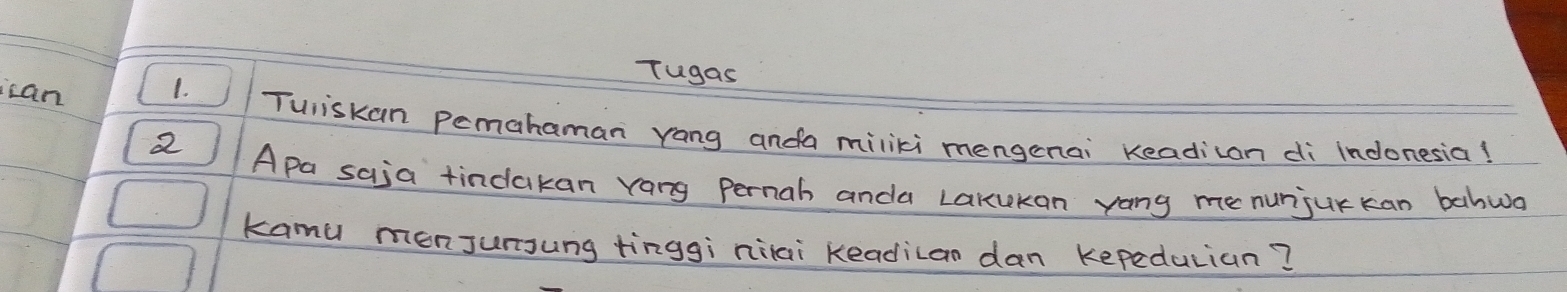 Tugas
ican
1. Tuliskan pemahaman yang anda miliki mengenai keadilan di Indonesia!
2 Apa saja tindakan yang pernah anda lakukan yang menunjukkan bahwa
kamu menjunjung tinggi nilai keadilan dan kepedulian?